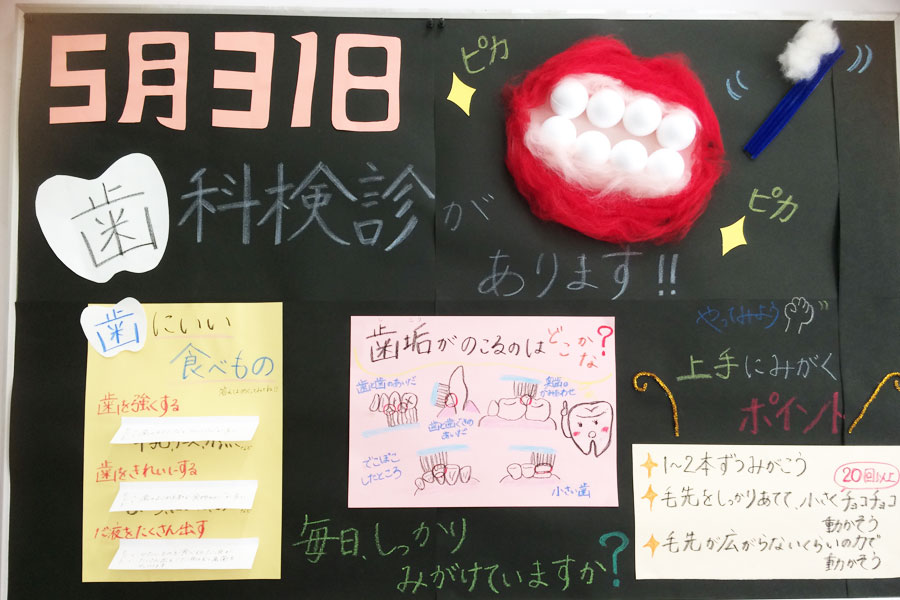 5月31日
ピカ
歯科検診が
あります!!
ピカ
歯にいい
食べもの
歯を強くする
歯をきれいにする
だ液をたくさん出す
歯垢がのこるのはどこかな?
歯と歯のあいだ
奥歯の
かみあわせ
歯と歯ぐきの
あいだ
でこぼこ
したところ
小さい歯
毎日、しっかり
みがけていますか?
やってみよう
上手にみがく
ポイント
1~2本ずつみがこう
20回以上
毛先をしっかりあてて、小さくチョコチョコ
動かそう
毛先が広がらないくらいの力で
動かそう